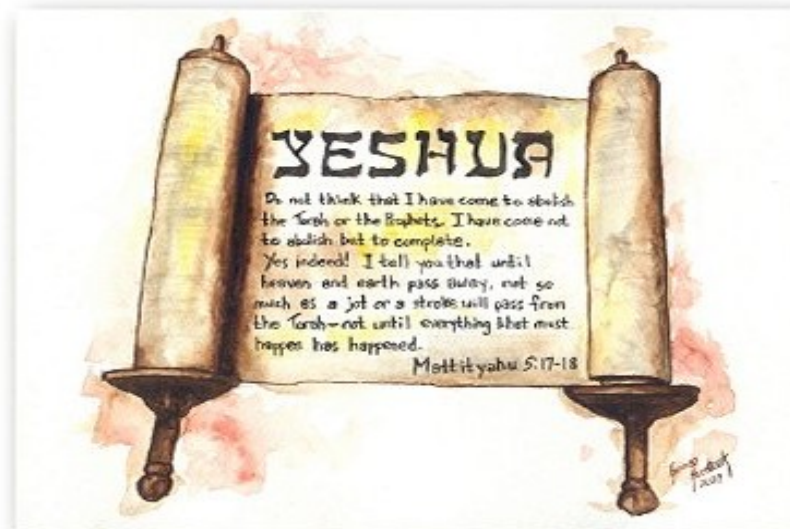 YESHUA
Do not think that I have come to abolish
the Torah or the Prophets. I have come not
to abolish but to complete.
Yes indeed! I tell you that until
heaven and earth pass away, not so
much as a jot or a stroke will pass from
the Torah—not until everything that must
happen has happened.
Mattityahu 5:17-18
2009